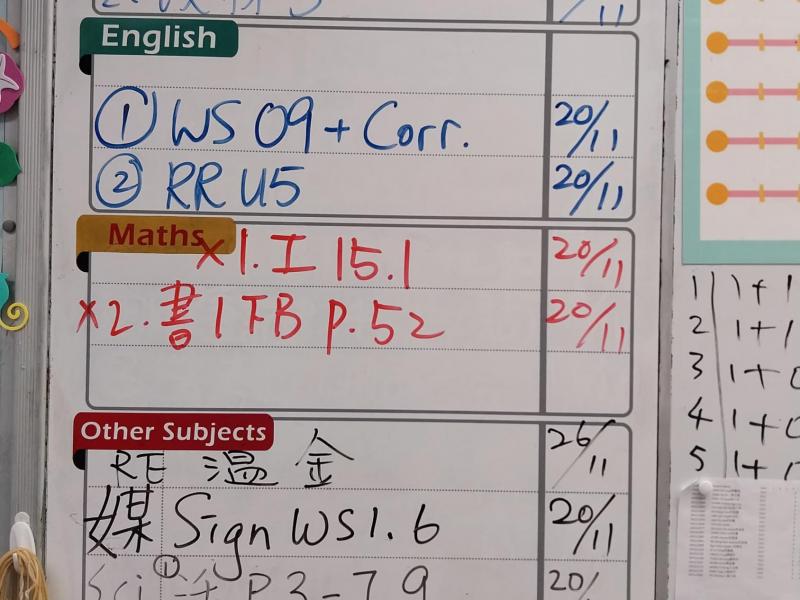 /11
English
① WS 09 + Corr. 20/11
② RR U5 20/11
Maths
×1. 工 15.1 20/11
×2. 書1下B p.52 20/11
Other Subjects
RE 温 金 26/11
媒 Sign WS1.6 20/11
Sci ① P3-7,9 20/
1 1+1
2 1+1
3 1+0
4 1+0
5 1+